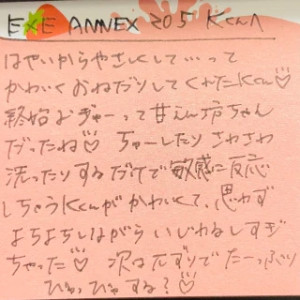 EXE ANNEX 205 Kくんへ
はやいからやさしくして…って
かわいくおねだりしてくれたKくん♡
終始おぎゃーって甘えん坊ちゃん
だったね♡ ちゃーしたりさわさわ
洗ったりするだけで敏感に反応
しちゃうKくんがかわいくて、思わず
よちよちしながらいじわるしすぎ
ちゃった♡ 次はズリでたーっぷり
ぴゅっぴゅする?♡